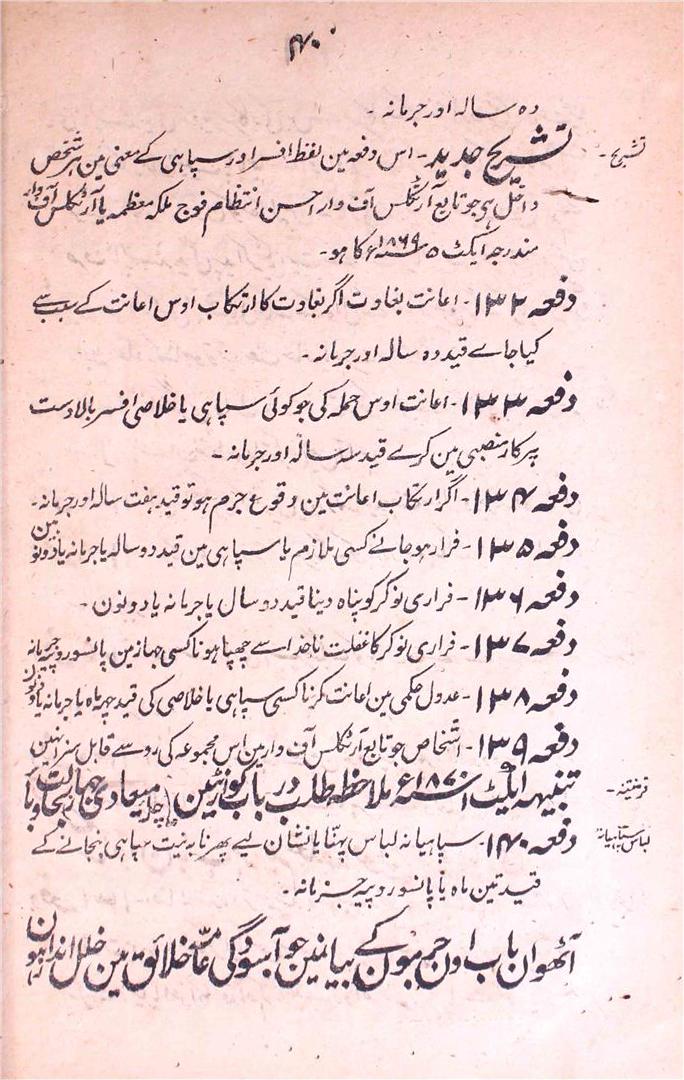 ۴۰
دہ سالہ اور جرمانہ۔
تشریح۔
تشریح جدید۔ اس دفعہ مین لفظ افسر اور سپاہی کے معنی مین ہر شخص
داخل ہی جو تابع آرٹکلس آف وار احسن انتظام فوج ملکہ معظمہ یا آرٹکلس آف وار
مندرجہ ایکٹ ۵ سنہ ۱۸۶۹ء کا ہو۔
دفعہ ۱۳۲۔ اعانت بغاوت اگر بغاوت کا ارتکاب اوس اعانت کے سبب سے
کیا جاے قید دہ سالہ اور جرمانہ۔
دفعہ ۱۳۳۔ اعانت اوس حملہ کی جو کوئی سپاہی یا خلاصی افسر بالادست
پر کار منصبی مین کرے قید سہ سالہ اور جرمانہ۔
دفعہ ۱۳۴۔ اگر ارتکاب اعانت مین وقوع جرم ہو تو قید ہفت سالہ اور جرمانہ۔
دفعہ ۱۳۵۔ فرار ہو جانے کسی ملازم یا سپاہی مین قید دو سالہ یا جرمانہ یا دونو
دفعہ ۱۳۶۔ فراری نوکر کو پناہ دینا قید دو سال یا جرمانہ یا دونون۔
دفعہ ۱۳۷۔ فراری نوکر کا غفلت ناخدا سے چھپا ہونا کسی جہاز مین پانسو روپیہ جرمانہ
دفعہ ۱۳۸۔ عدول حکمی مین اعانت کرنا کسی سپاہی یا خلاصی کی قید چھہ ماہ یا جرمانہ یا دونون
دفعہ ۱۳۹۔ اشخاص جو تابع آرٹکلس آف وار مین اس مجموعہ کی رو سے قابل سزا نہین
تنبیہہ ایکٹ ۱ سنہ ۱۸۷۰ء ملاحظہ طلب در باب کوارنٹین
دفعہ ۱۴۰۔ سپاہیانہ لباس پہننا یا نشان لیے پھرنا بہ نیت سپاہی بنجانے کے
لباس سپاہیانہ
قید تین ماہ یا پانسو روپیہ جرمانہ۔
آٹھوان باب اون جرمون کے بیانمین جو آسودگی عامہ خلائق مین خلل انداز ہون